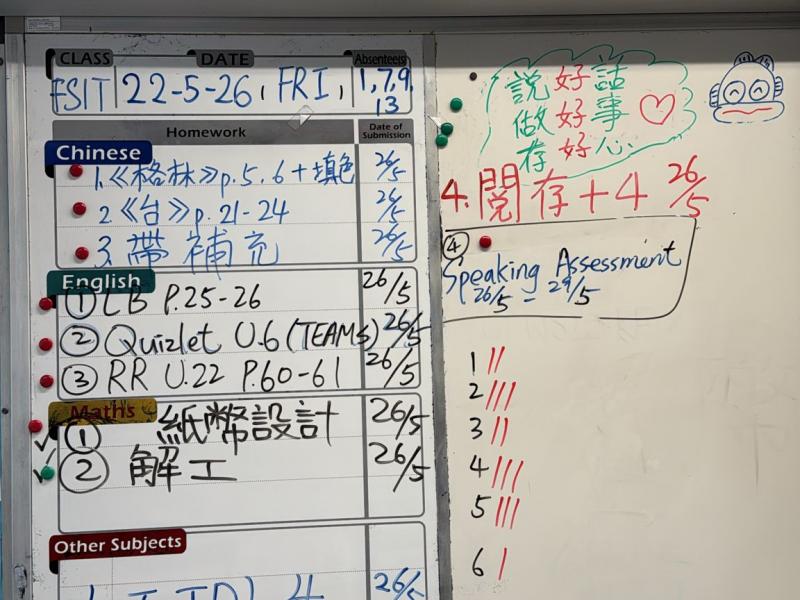 CLASS DATE Absentee(s)
FSIT 22-5-26, FRI, 1,7,9,
13
Homework Date of Submission
Chinese
1.《格林》p.5.6+填色 26/5
2《台》p.21-24 26/5
3.帶補充 26/5
English
① LB P.25-26 26/5
② Quizlet U.6 (TEAMS) 26/5
③ RR U.22 P.60-61 26/5
Maths
① 紙幣設計 26/5
② 解工 26/5
Other Subjects
26/5
說好話
做好事
存好心
4. 閱存+4 26/5
④
Speaking Assessment
26/5 - 29/5
1
2
3
4
5
6